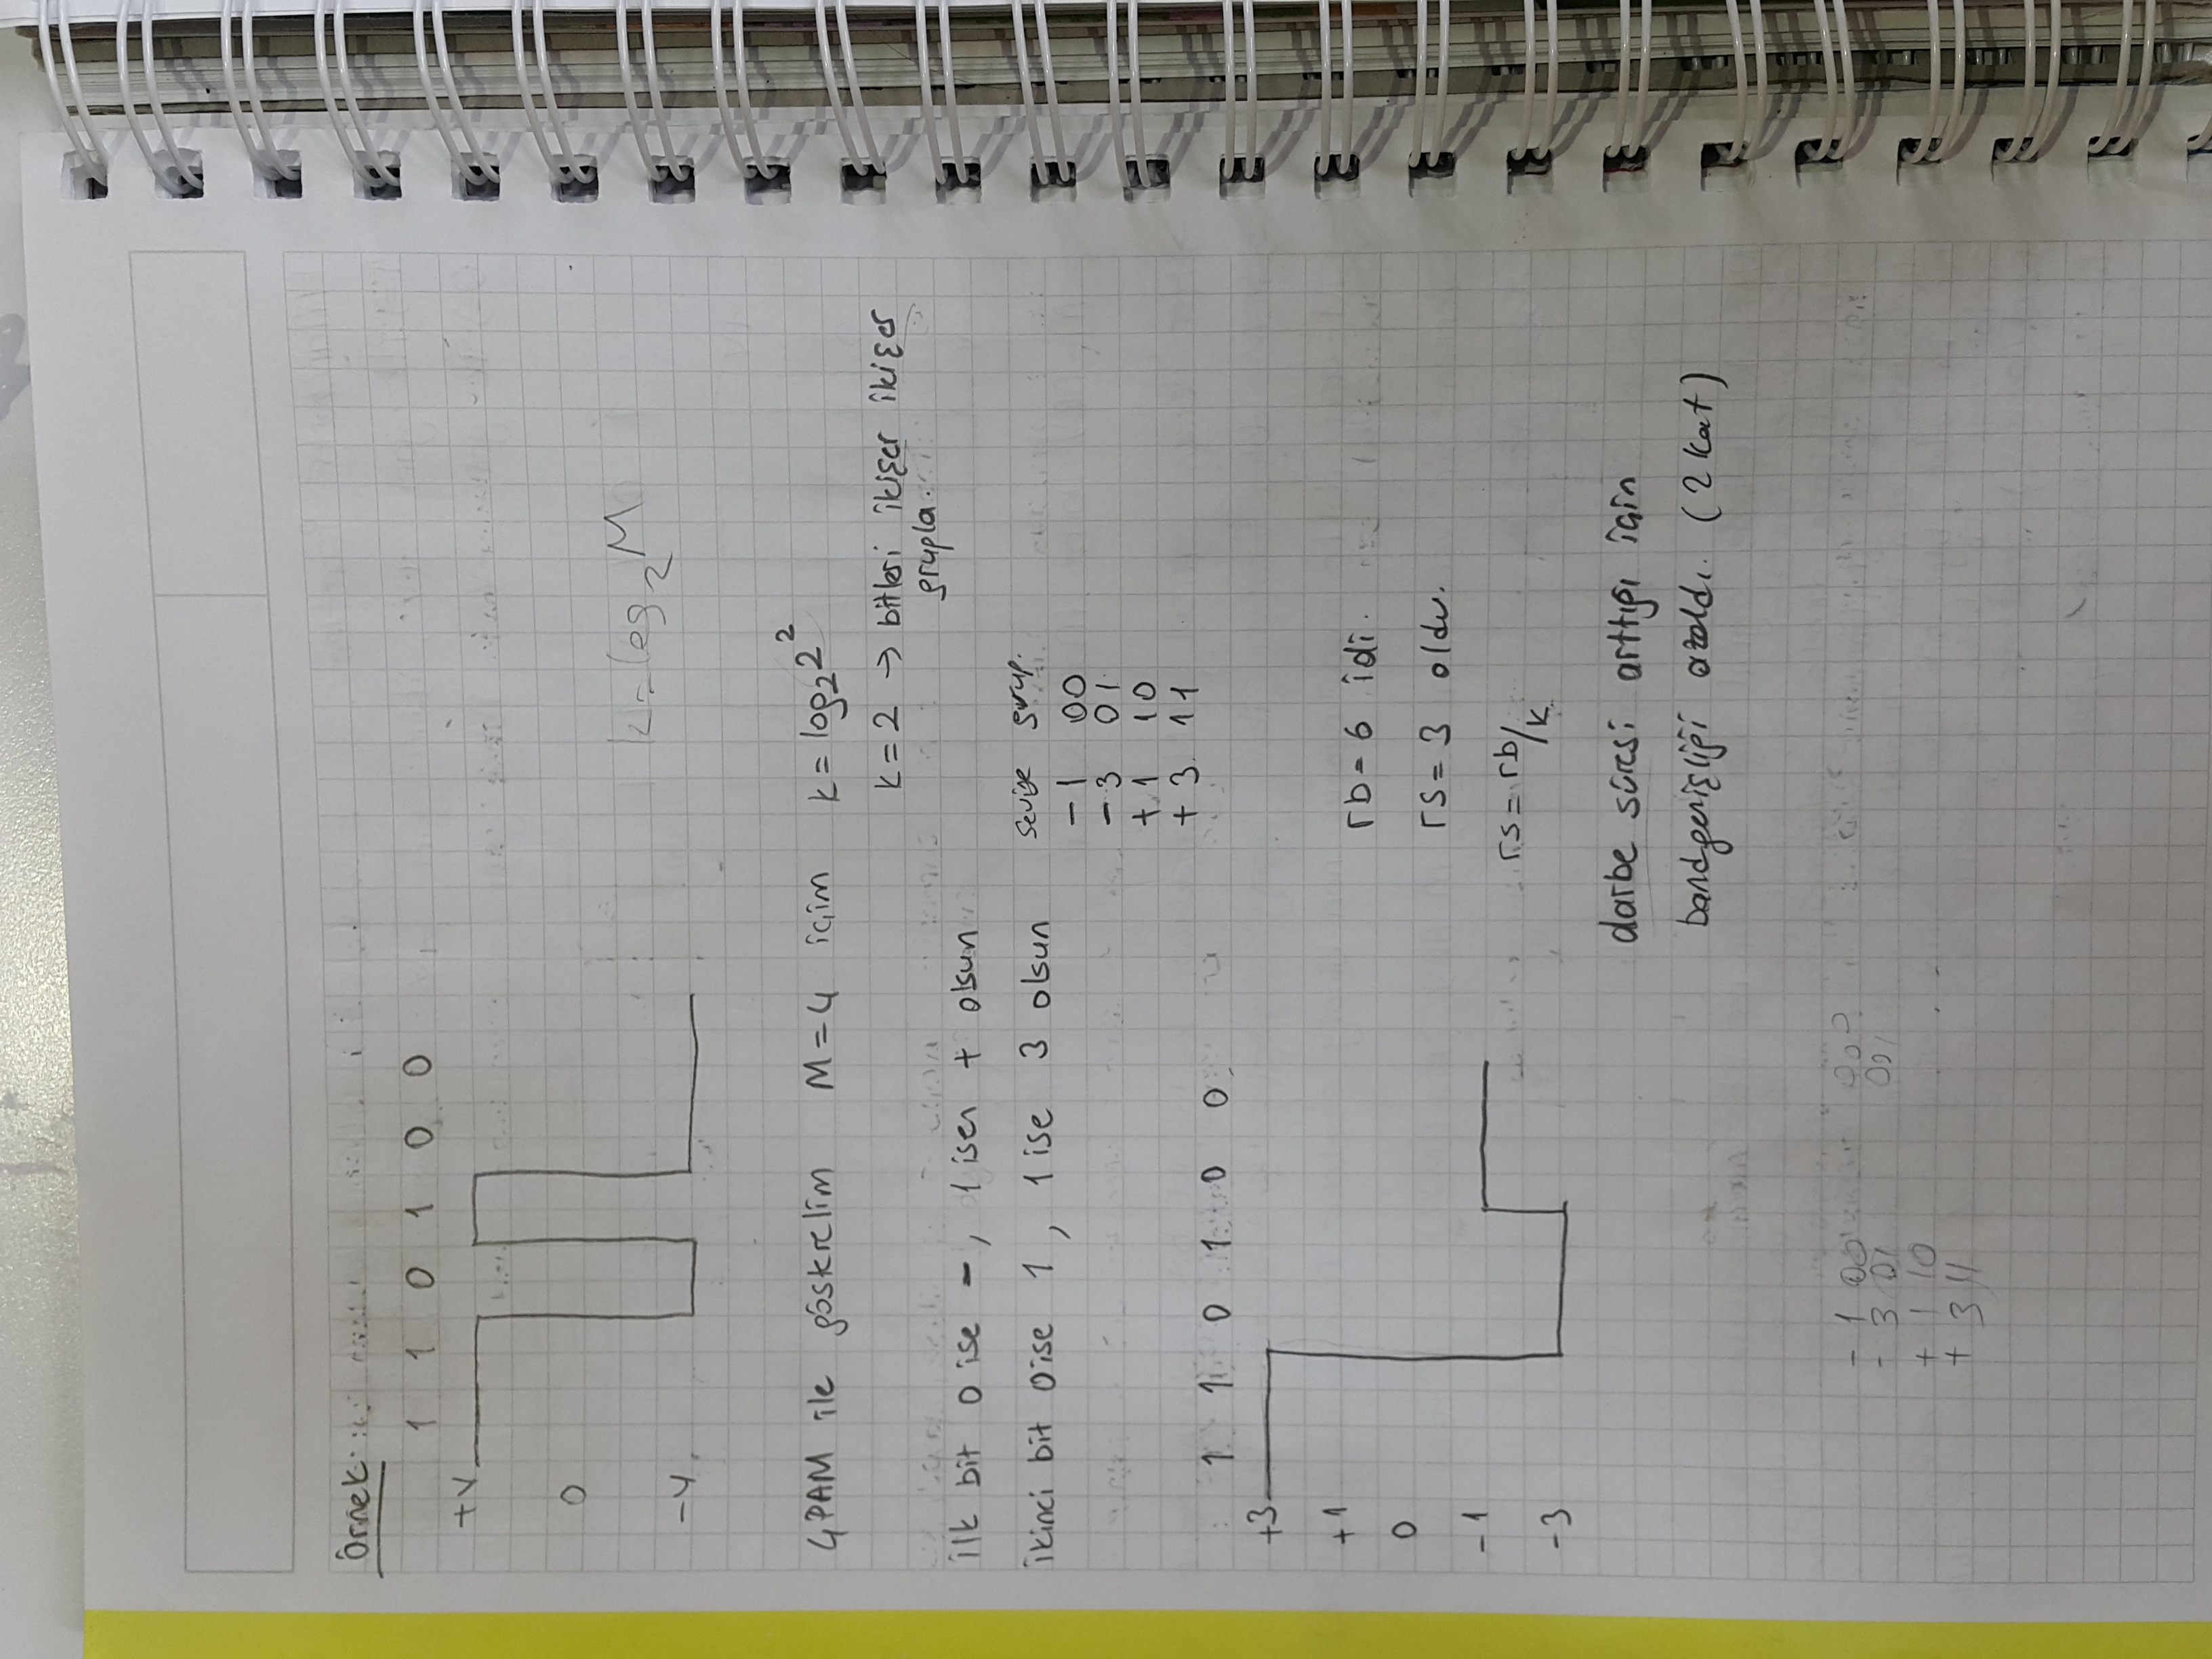 Örnek:
1 1 0 1 0 0
+V
0
-V
k = log₂M
4PAM ile gösterelim M=4 için k = log₂2²
k = 2 → bitleri ikişer ikişer
grupla.
ilk bit 0 ise -, 1 isen + olsun
ikinci bit 0 ise 1, 1 ise 3 olsun
seviye grup.
-1 00
-3 01
+1 10
+3 11
1 1 0 1 0 0
+3
+1
0
-1
-3
rb = 6 idi.
rs = 3 oldu.
rs = rb/k
darbe süresi arttığı için
bandgenişliği azaldı. (2 kat)
- 1 00 000
- 3 01 001
+ 1 10
+ 3 11